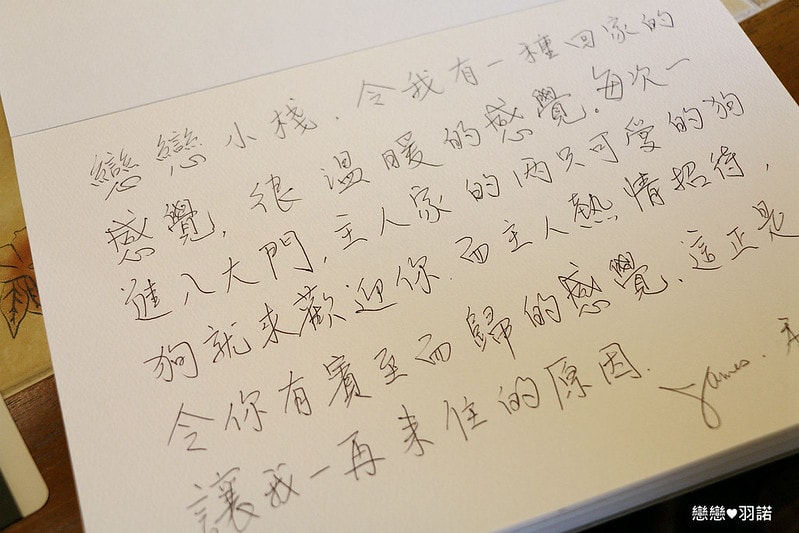 戀戀小棧，令我有一種回家的
感覺，很溫暖的感覺．每次一
進入大門，主人家的两只可爱的狗
狗就来歡迎你．而主人熱情招待，
令你有賓至而歸的感覺．這正是
讓我一再来住的原因．
James．
戀戀♥羽諾